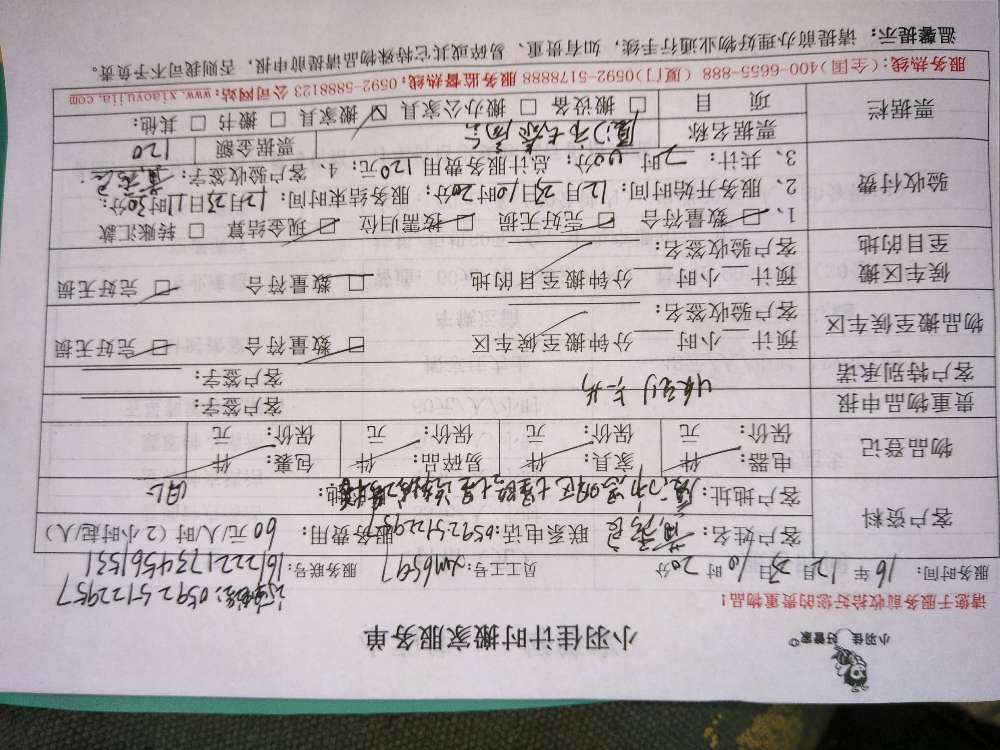 小羽佳 好管家
小羽佳计时搬家服务单
请您于服务前收拾好您的贵重物品！
05925122957
服务时间：16年12月23日10时20分 员工工号：XM6597 服务账号：
客户资料 客户姓名： 联系电话：05925122957 服务费用：60元/人/时（2小时起/人）
客户地址：厦门市思明区
物品登记 电器： 件 家具： 件 易碎品： 件 包裹： 件
保价： 元 保价： 元 保价： 元 保价： 元
贵重物品申报 客户签字：
客户特别承诺 客户签字：
物品搬至候车区 预计 小时 分钟搬至候车区 □ 数量符合 □ 完好无损
客户验收签名：
候车区搬至目的地 预计 小时 分钟搬至目的地 □ 数量符合 □ 完好无损
客户验收签名：
验收付费 1、□ 数量符合 □ 完好无损 □ 按需归位 □ 现金结算 □ 转账汇款
2、服务开始时间：12月23日10时20分；服务结束时间：12月23日11时30分；
3、共计：2时00分；总计服务费用120元；4、客户验收签字：
票据栏 票据名称 票据金额 120
项 目 □ 搬设备 □ 搬办公家具 □ 搬家具 □ 搬书 □ 其他：
服务热线：(全国)400-6655-888 (厦门)0592-5178888 服务监督热线：0592-5888123 公司网站：www.xiaoyujia.com
温馨提示：请提前办理好物业通行手续，如有贵重、易碎或其它特殊物品请提前申报，否则我司不予负责。